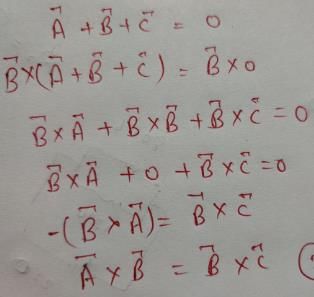 A⃗ + B⃗ + C⃗ = 0
B⃗ × (A⃗ + B⃗ + C⃗) = B⃗ × 0
B⃗ × A⃗ + B⃗ × B⃗ + B⃗ × C⃗ = 0
B⃗ × A⃗ + 0 + B⃗ × C⃗ = 0
-(B⃗ × A⃗) = B⃗ × C⃗
A⃗ × B⃗ = B⃗ × C⃗